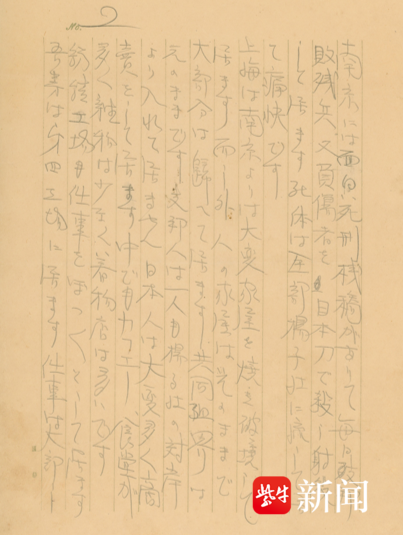 No. 2
南京には面白い死刑桟橋があつて毎日
敗残兵又負傷者を日本刀で殺し射
して居ます 死体は全部揚子江に流して
て痛快です
上海は南京よりは大変家屋を焼き破壊して
居ます 而し外人の家屋は元のままで
大部分は帰へて居ます 共同租界りは
元のままです 支那人は一人も揚子江の対岸
より入れて居ません 日本人は大変多く商
売をして居ます 中でもカフエー、食堂が
多く雑物は少なく着物店は多いです
鋳鉄工場も仕事をぼつ〱として居ます
吾々は第四工場に居ます 仕事は大部
紫牛新闻